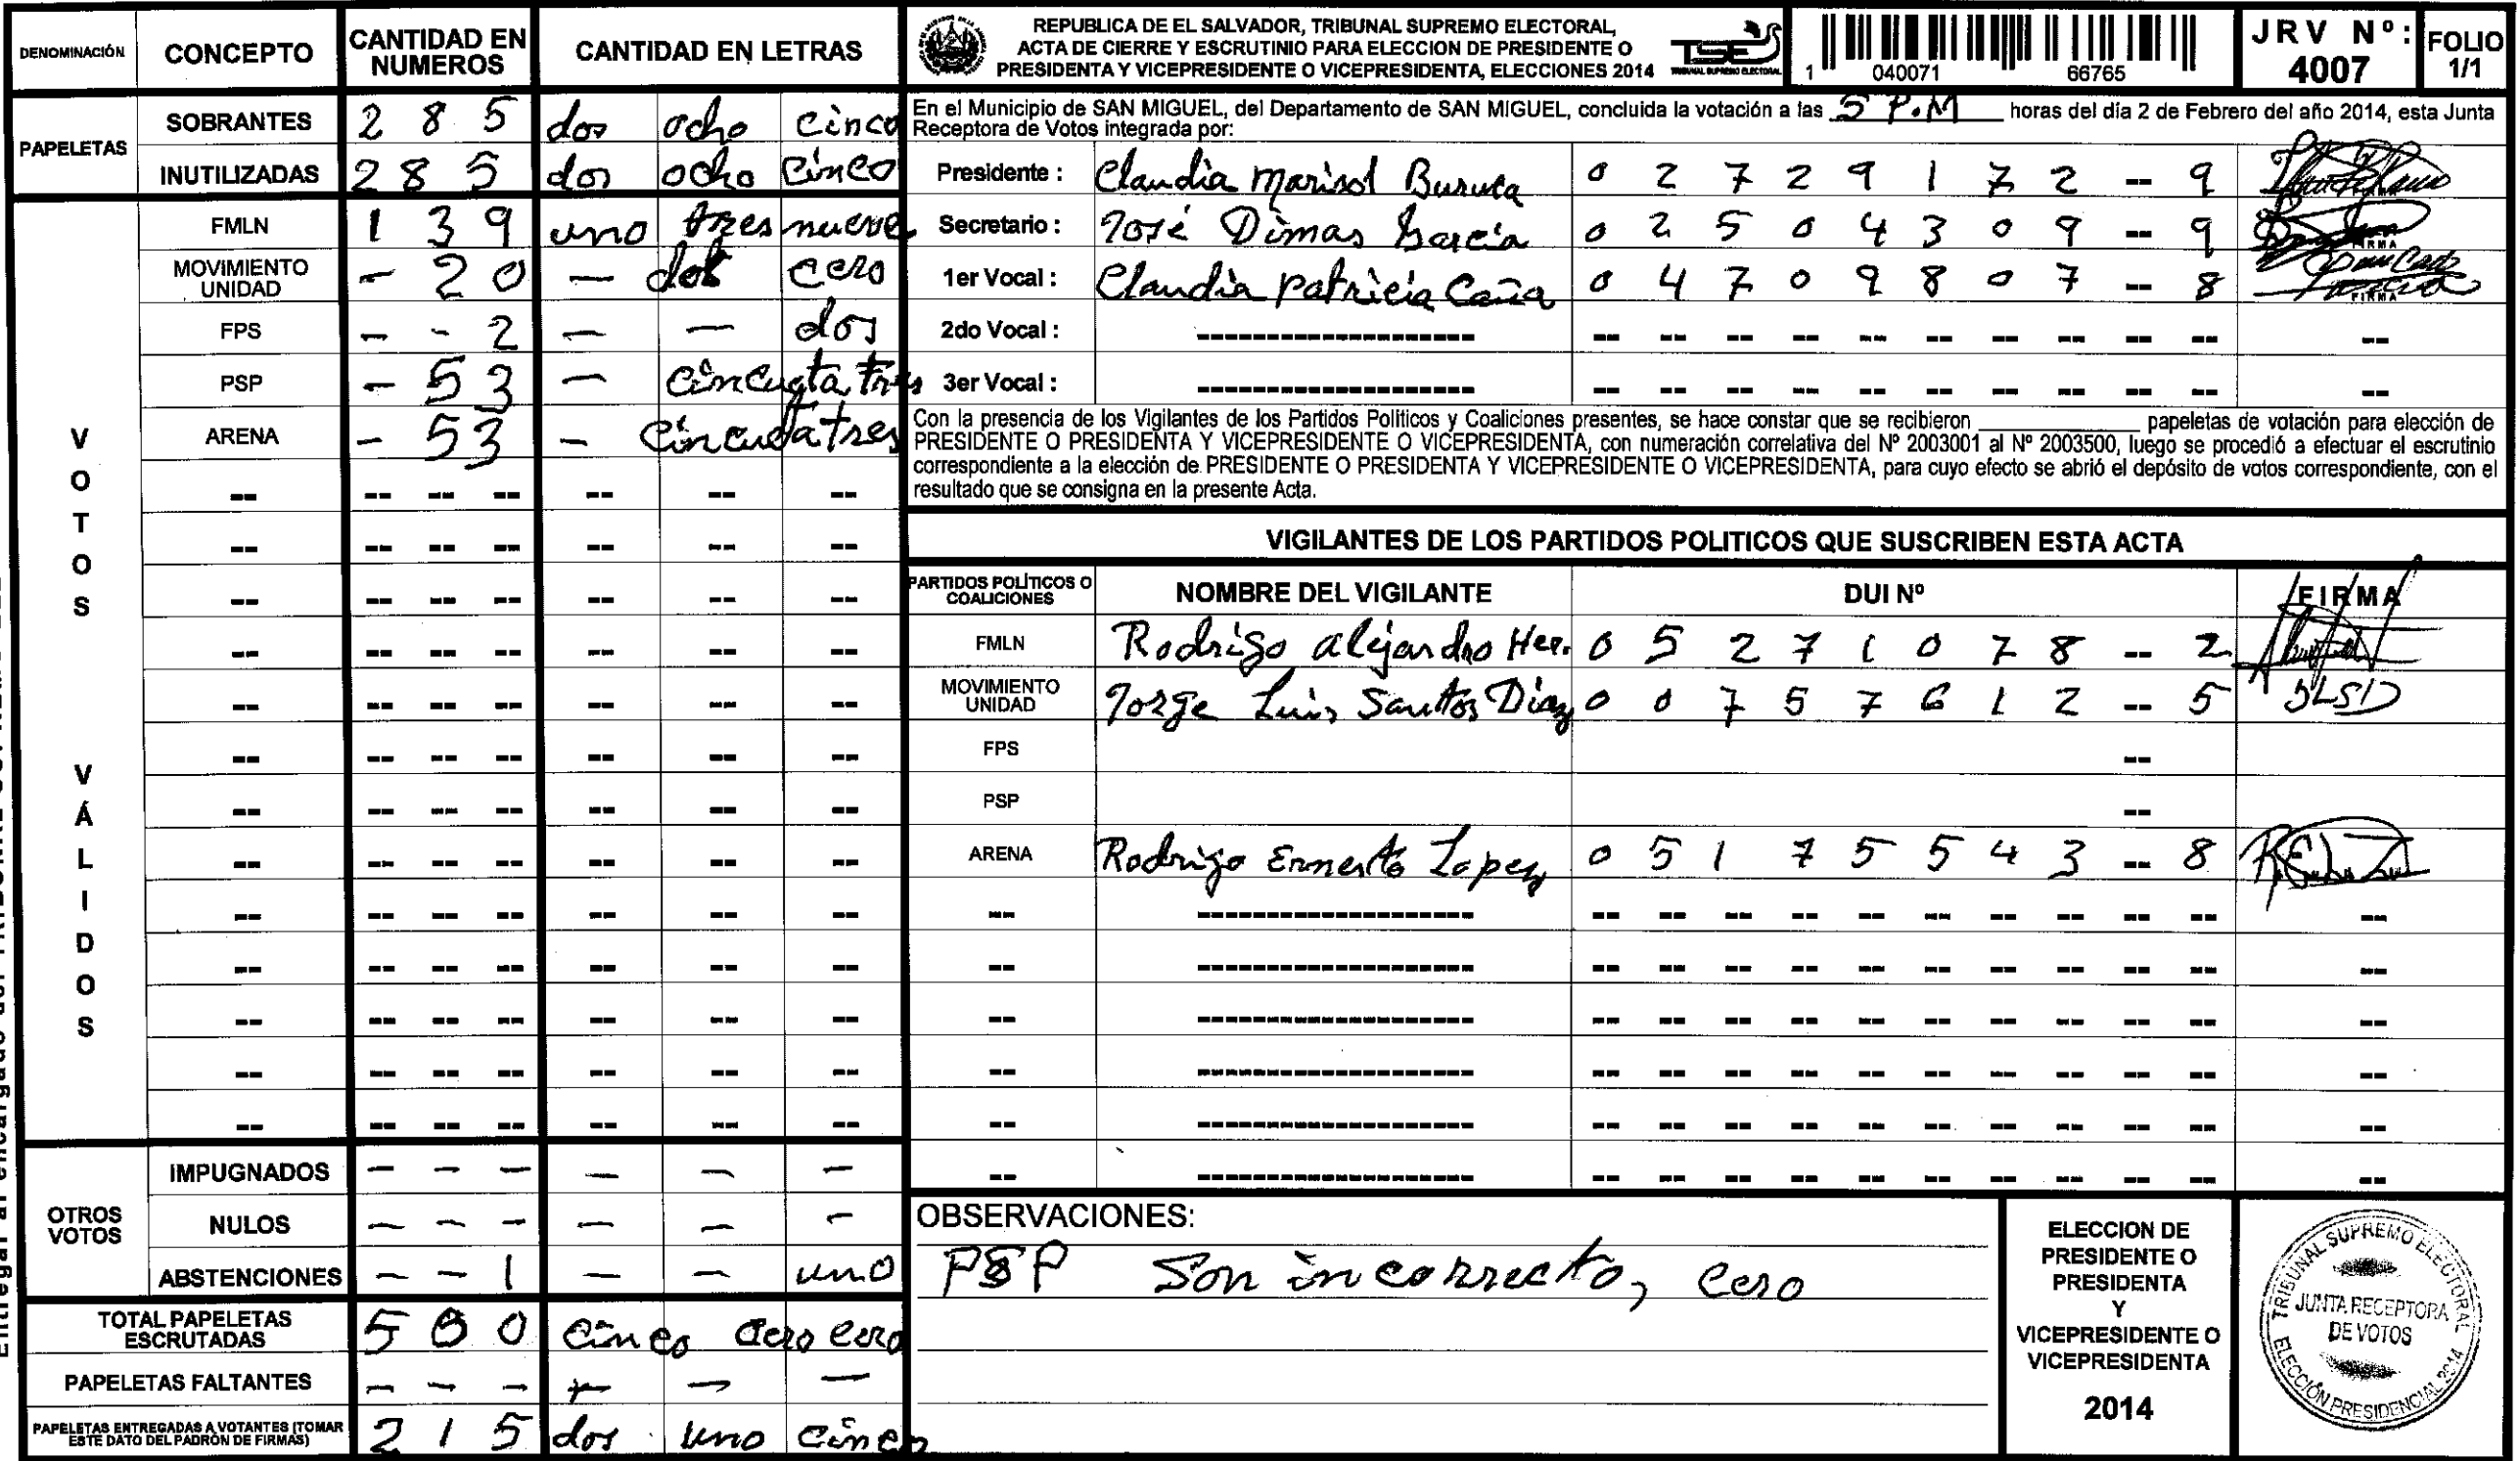 DENOMINACIÓN CONCEPTO CANTIDAD EN NUMEROS CANTIDAD EN LETRAS
PAPELETAS
SOBRANTES 2 8 5 dos ocho cinco
INUTILIZADAS 2 8 5 dos ocho cinco
VOTOS VÁLIDOS
FMLN 1 3 9 uno tres nueve
MOVIMIENTO UNIDAD - 2 0 - dos cero
FPS - - 2 - - dos
PSP - 5 3 - cincueta tres
ARENA - 5 3 - cincueta tres
-- -- -- -- -- -- --
-- -- -- -- -- -- --
-- -- -- -- -- -- --
-- -- -- -- -- -- --
-- -- -- -- -- -- --
-- -- -- -- -- -- --
-- -- -- -- -- -- --
-- -- -- -- -- -- --
-- -- -- -- -- -- --
-- -- -- -- -- -- --
-- -- -- -- -- -- --
-- -- -- -- -- -- --
-- -- -- -- -- -- --
OTROS VOTOS
IMPUGNADOS - - - - - -
NULOS - - - - - -
ABSTENCIONES - - 1 - - uno
TOTAL PAPELETAS ESCRUTADAS 5 0 0 cinco cero cero
PAPELETAS FALTANTES - - - - - -
PAPELETAS ENTREGADAS A VOTANTES (TOMAR ESTE DATO DEL PADRÓN DE FIRMAS) 2 1 5 dos uno cinco
REPUBLICA DE EL SALVADOR, TRIBUNAL SUPREMO ELECTORAL,
ACTA DE CIERRE Y ESCRUTINIO PARA ELECCION DE PRESIDENTE O
PRESIDENTA Y VICEPRESIDENTE O VICEPRESIDENTA, ELECCIONES 2014
TSE
TRIBUNAL SUPREMO ELECTORAL
1 040071 66765
JRV Nº: 4007
FOLIO 1/1
En el Municipio de SAN MIGUEL, del Departamento de SAN MIGUEL, concluida la votación a las 5 P.M horas del día 2 de Febrero del año 2014, esta Junta
Receptora de Votos integrada por:
Presidente : Claudia Marisol Buruca 0 2 7 2 9 1 7 2 -- 9
Secretario : José Dimas Garcia 0 2 5 0 4 3 0 9 -- 9 FIRMA
1er Vocal : Claudia Patricia Caña 0 4 7 0 9 8 0 7 -- 8 FIRMA
2do Vocal : ------------------ -- -- -- -- -- -- -- -- -- -- --
3er Vocal : ------------------ -- -- -- -- -- -- -- -- -- -- --
Con la presencia de los Vigilantes de los Partidos Políticos y Coaliciones presentes, se hace constar que se recibieron ________ papeletas de votación para elección de
PRESIDENTE O PRESIDENTA Y VICEPRESIDENTE O VICEPRESIDENTA, con numeración correlativa del Nº 2003001 al Nº 2003500, luego se procedió a efectuar el escrutinio
correspondiente a la elección de PRESIDENTE O PRESIDENTA Y VICEPRESIDENTE O VICEPRESIDENTA, para cuyo efecto se abrió el depósito de votos correspondiente, con el
resultado que se consigna en la presente Acta.
VIGILANTES DE LOS PARTIDOS POLITICOS QUE SUSCRIBEN ESTA ACTA
PARTIDOS POLÍTICOS O COALICIONES NOMBRE DEL VIGILANTE DUI Nº FIRMA
FMLN Rodrigo Alejandro Her. 0 5 2 7 1 0 7 8 -- 2
MOVIMIENTO UNIDAD Jorge Luis Santos Diaz 0 0 7 5 7 6 1 2 -- 5 JLSD
FPS --
PSP --
ARENA Rodrigo Ernesto Lopez 0 5 1 7 5 5 4 3 -- 8
-- ------------------ -- -- -- -- -- -- -- -- -- -- --
-- ------------------ -- -- -- -- -- -- -- -- -- -- --
-- ------------------ -- -- -- -- -- -- -- -- -- -- --
-- ------------------ -- -- -- -- -- -- -- -- -- -- --
-- ------------------ -- -- -- -- -- -- -- -- -- -- --
-- ------------------ -- -- -- -- -- -- -- -- -- -- --
OBSERVACIONES:
PSP Son incorrecto, cero
ELECCION DE
PRESIDENTE O
PRESIDENTA
Y
VICEPRESIDENTE O
VICEPRESIDENTA
2014
TRIBUNAL SUPREMO ELECTORAL
JUNTA RECEPTORA
DE VOTOS
ELECCIÓN PRESIDENCIAL 2014